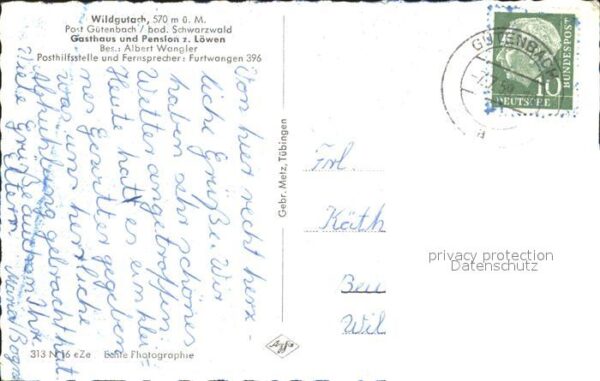 Wildgutach, 570 m ü. M.
Post Gütenbach / bad. Schwarzwald
Gasthaus und Pension z. Löwen
Bes.: Albert Wangler
Posthilfsstelle und Fernsprecher: Furtwangen 396
Von hier recht herz-
liche Grüße. Wir
haben sehr schönes
Wetter angetroffen.
Heute hat es ein klei-
nes Gewitter gegeben
was uns herrliche
Abkühlung gebracht hat
Viele Grüße auch an Ihre
Eltern
Gebr. Metz, Tübingen
313 N 16 eZe Echte Photographie
Agfa
GÜTENBACH
10
DEUTSCHE
BUNDESPOST
Frl.
Käth
Wil
privacy protection
Datenschutz